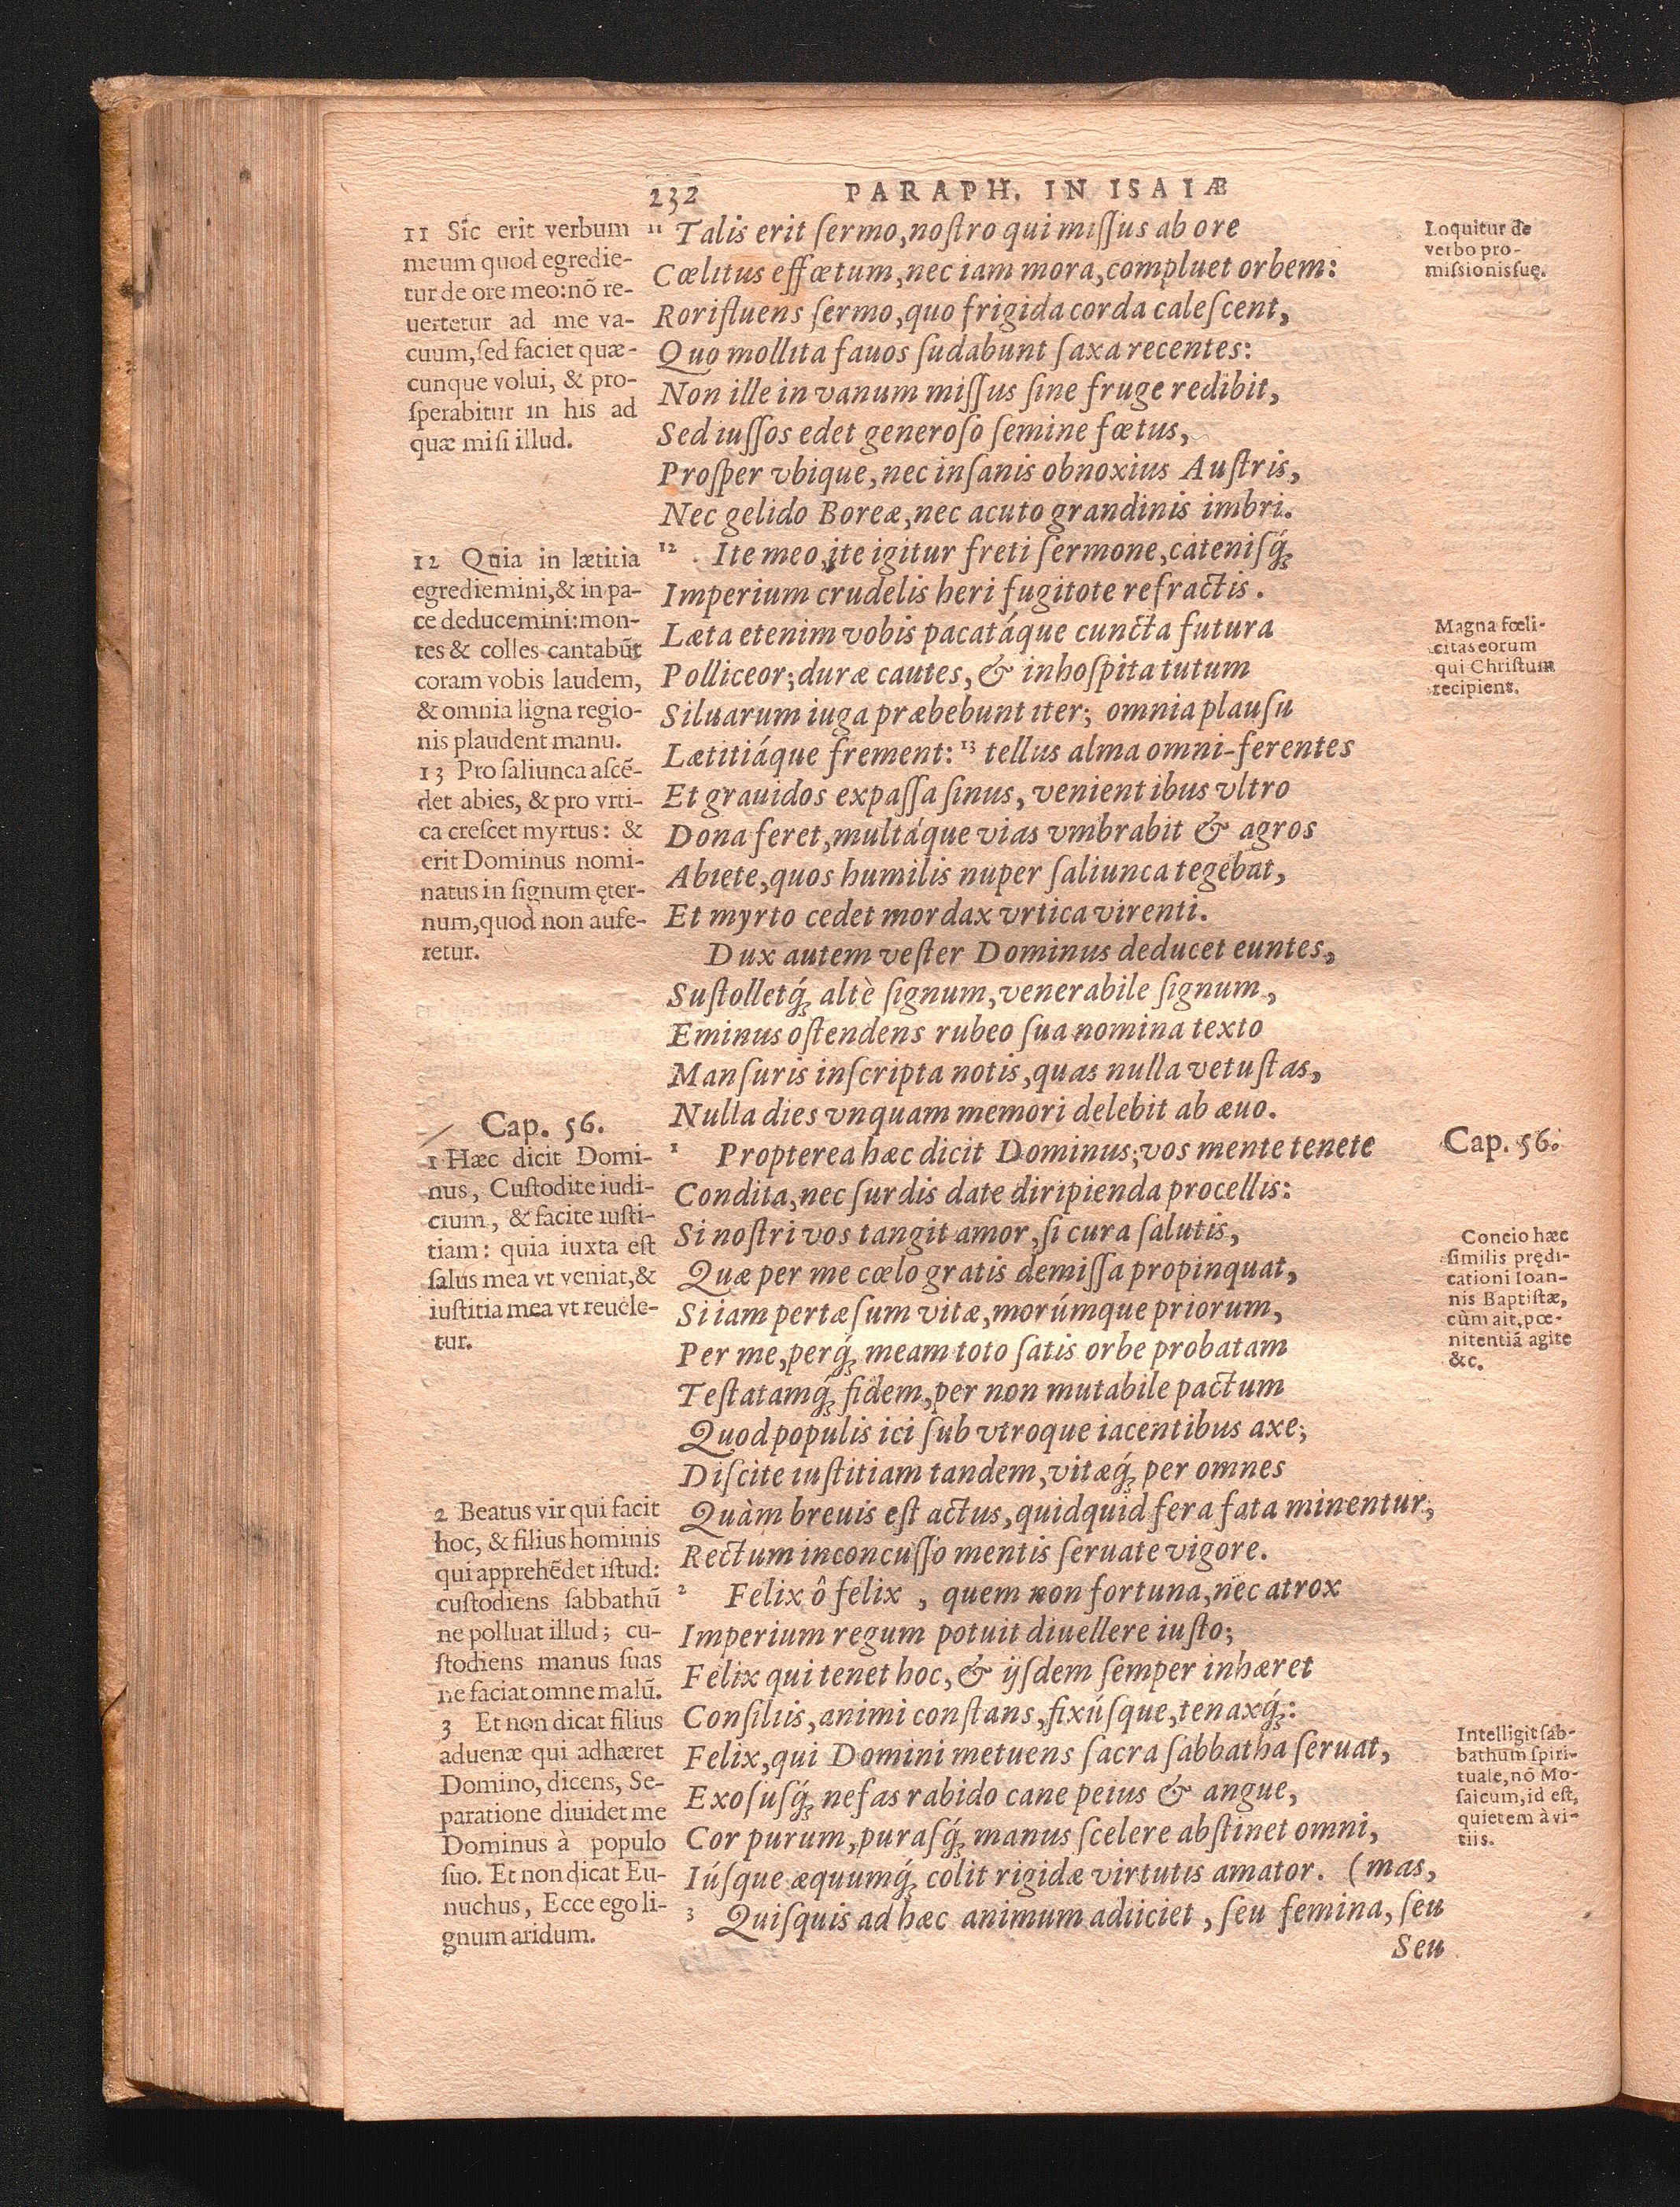 232 PARAPH. IN ISAIÆ
11 Sic erit verbum
meum quod egredie-
tur de ore meo:nõ re-
uertetur ad me va-
cuum,ſed faciet quæ-
cunque volui, & pro-
ſperabitur in his ad
quæ miſi illud.
12 Quia in lætitia
egrediemini,& in pa-
ce deducemini:mon-
tes & colles cantabũt
coram vobis laudem,
& omnia ligna regio-
nis plaudent manu.
13 Pro ſaliunca aſcẽ-
det abies, & pro vrti-
ca creſcet myrtus: &
erit Dominus nomi-
natus in ſignum ęter-
num,quod non aufe-
retur.
Cap. 56.
1 Hæc dicit Domi-
nus, Cuſtodite iudi-
cium, & facite iuſti-
tiam: quia iuxta eſt
ſalus mea vt veniat,&
iuſtitia mea vt reuele-
tur.
2 Beatus vir qui facit
hoc, & filius hominis
qui apprehẽdet iſtud:
cuſtodiens ſabbathũ
ne polluat illud; cu-
ſtodiens manus ſuas
ne faciat omne malũ.
3 Et non dicat filius
aduenæ qui adhæret
Domino, dicens, Se-
paratione diuidet me
Dominus à populo
ſuo. Et non dicat Eu-
nuchus, Ecce ego li-
gnum aridum.
11 Talis erit ſermo,noſtro qui miſſus ab ore
Cœlitus effœtum,nec iam mora,compluet orbem:
Rorifluens ſermo,quo frigida corda caleſcent,
Quo mollita fauos ſudabunt ſaxa recentes:
Non ille in vanum miſſus ſine fruge redibit,
Sed iuſſos edet generoſo ſemine fœtus,
Proſper vbique,nec inſanis obnoxius Auſtris,
Nec gelido Boreæ,nec acuto grandinis imbri.
12 Ite meo,ite igitur freti ſermone,cateniſq́;
Imperium crudelis heri fugitote refractis.
Læta etenim vobis pacatáque cuncta futura
Polliceor;duræ cautes,& inhoſpita tutum
Siluarum iuga præbebunt iter; omnia plauſu
Lætitiáque frement: 13 tellus alma omni-ferentes
Et grauidos expaſſa ſinus, venientibus vltro
Dona feret,multáque vias vmbrabit & agros
Abiete,quos humilis nuper ſaliunca tegebat,
Et myrto cedet mordax vrtica virenti.
Dux autem veſter Dominus deducet euntes,
Suſtolletq́; altè ſignum,venerabile ſignum,
Eminus oſtendens rubeo ſua nomina texto
Manſuris inſcripta notis,quas nulla vetuſtas,
Nulla dies vnquam memori delebit ab æuo.
1 Propterea hæc dicit Dominus;vos mente tenete
Condita,nec ſurdis date diripienda procellis:
Si noſtri vos tangit amor,ſi cura ſalutis,
Quæ per me cœlo gratis demiſſa propinquat,
Si iam pertæſum vitæ,morúmque priorum,
Per me,perq́; meam toto ſatis orbe probatam
Teſtatamq́; fidem,per non mutabile pactum
Quod populis ici ſub vtroque iacentibus axe;
Diſcite iuſtitiam tandem,vitæq́; per omnes
Quàm breuis eſt actus,quidquid fera fata minentur,
Rectum inconcuſſo mentis ſeruate vigore.
2 Felix ô felix , quem non fortuna,nec atrox
Imperium regum potuit diuellere iuſto;
Felix qui tenet hoc,& ijſdem ſemper inhæret
Conſiliis,animi conſtans,fixúſque,tenaxq́;:
Felix,qui Domini metuens ſacra ſabbatha ſeruat,
Exoſuſq́; nefas rabido cane peius & angue,
Cor purum,puraſq́; manus ſcelere abſtinet omni,
Iúſque æquumq́; colit rigidæ virtutis amator. (mas,
3 Quiſquis ad hæc animum adiiciet , ſeu femina, ſeu
Seu
Loquitur de
verbo pro-
miſsionis ſuę.
Magna fœli-
citas eorum
qui Chriſtum
recipient.
Cap. 56.
Concio hæc
ſimilis prędi-
cationi Ioan-
nis Baptiſtæ,
cùm ait, pœ-
nitentiã agite
&c.
Intelligit ſab-
bathum ſpiri-
tuale,nõ Mo-
ſaicum,id eſt,
quietem à vi-
tiis.